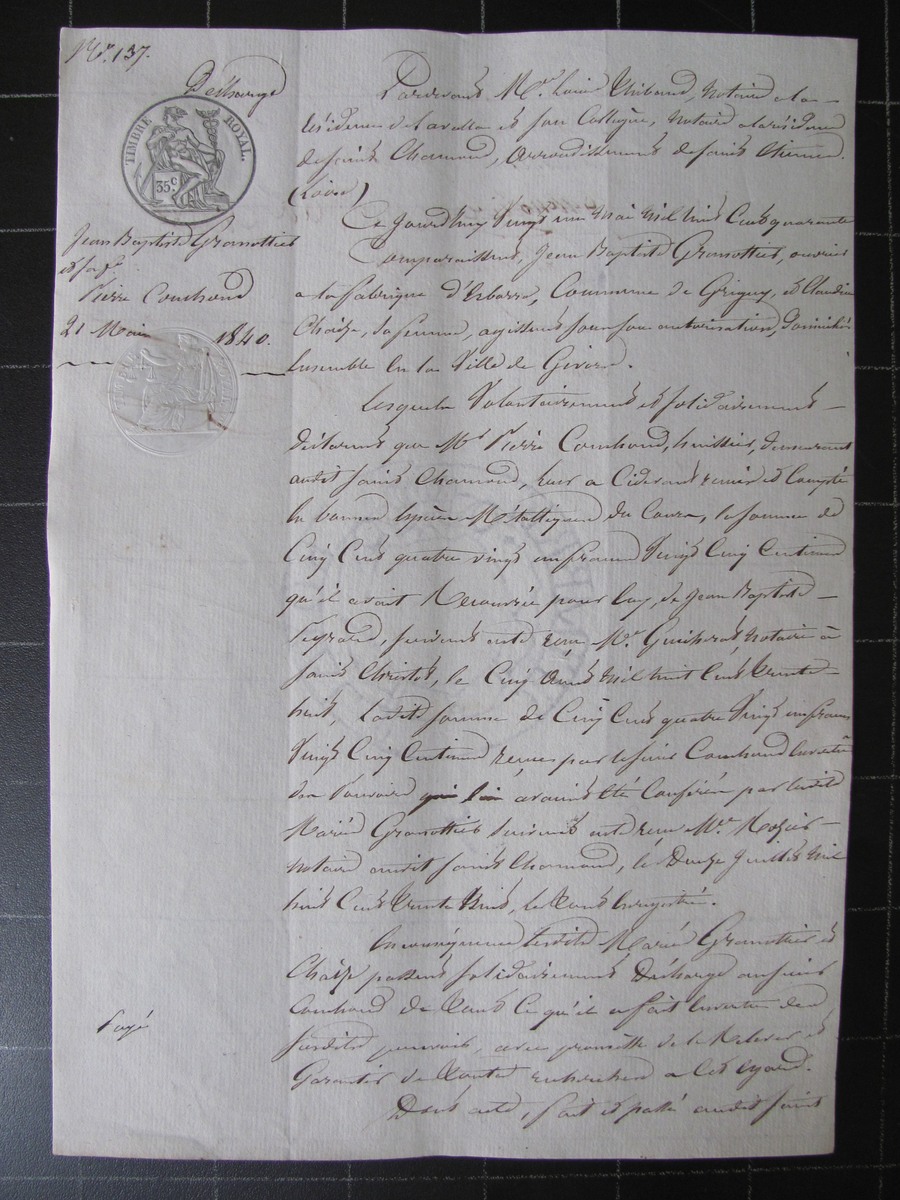 No. 137.
Décharge
TIMBRE ROYAL.
35c.
Jean Baptiste Gramottier
et sa fe
Pierre Couchoud
21 Mai 1840.
Payé
Pardevant Me. Louis Thibaud, Notaire a la
résidence de Lavalla et son Collègue, Notaire a la résidence
de Saint Chamond, arrondissement de Saint Etienne
(Loire)
Ce Jourdhuy Vingt un Mai Mil huit Cent quarante
Comparaissent, Jean Baptiste Gramottier, ouvrier
a la fabrique d'Arboras, Commune de Grigny, et Claudine
Chaize, sa femme, agissant sous son autorisation, domiciliés
Ensemble En la Ville de Givors.
Lesquels Volontairement et solidairement
déclarent que Mr Pierre Couchoud, huissier, demeurant
audit Saint Chamond, leur a Cidevant remis et Compté
En bonnes Espèces Métalliques du Cours, la somme de
Cinq Cent quatre vingt un francs Vingt Cinq Centimes
qu'il avait Recouvrée pour Eux, de Jean Baptiste
Peyrard, suivant acte reçu Me. Notaire à
Saint Christot, le Cinq Août Mil huit Cent trente
huit, Ladite somme de Cinq Cent quatre Vingt un francs
Vingt Cinq Centimes reçue par le sieur Couchoud En vertu
des Pouvoirs qui lui avaient Eté Conférés par lesdits
Mariés Gramottier suivant acte reçu Me.
notaire audit Saint Chamond, le Douze Juillet Mil
huit Cent trente huit, le tout Enregistré.
En conséquence lesdits Mariés Gramottier et
Chaize passent solidairement Décharge au sieur
Couchoud de tout Ce qu'il a fait En vertu des
susdits pouvoirs, avec promesse de le Relever et
Garantir de toutes recherches a Cet Egard.
Dont acte, fait et passé audit Saint